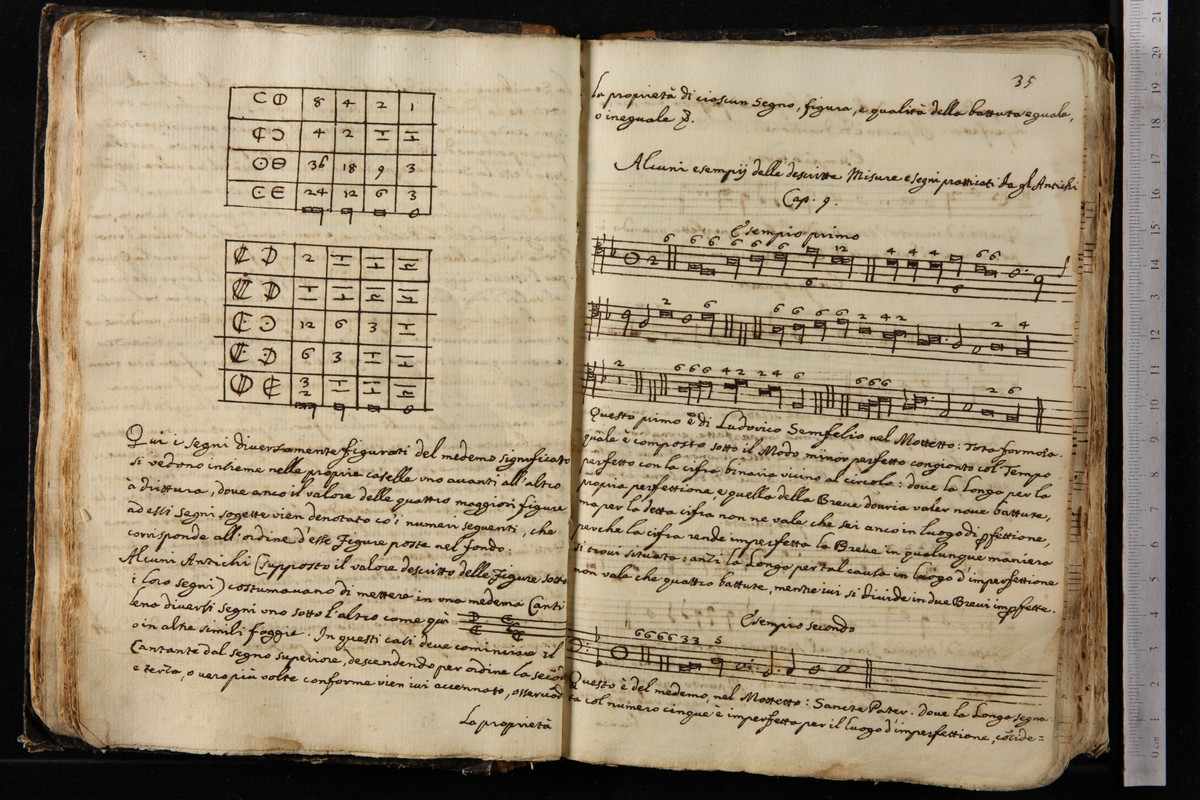 8 4 2 1
4 2
36 18 9 3
24 12 6 3
2
12 6 3
6 3
3
2
Qui i segni diversamente figurati del medemo significato
si vedono insieme nelle proprie caselle uno avanti all'altro
à drittura, dove anco il valore delle quattro maggiori figure
ad essi segni sogette vien denotato co'i numeri seguenti, che
corrisponde all'ordine d'esse Figure poste nel fondo.
Alcuni Antichi (supposto il valore descritto delle Figure sotto
i loro segni) costumavano di mettere in una medema Canti
lena diversi segni uno sotto l'altro come quì
o in altre simili foggie. In questi casi deve cominciare il
Cantante dal segno superiore, descendendo per ordine la secõda
e terza, o vero più volte conforme vien ivi accennato, osservãdo
La proprietà
35
la proprietà di ciascun segno, figura, e qualità della battuta eguale,
o ineguale
Alcuni esempij delle descritte Misure e segni pratticati da gl'Antichi
Cap. 9.
Esempio primo
6 6 6 6 6 6 12 4 4 4 6 6
2
6 6
2 6 6 6 6 6 2 4 2 2 4
2 6 6 6 4 2 2 4 6 6 6 6 2 6
Questo primo è di Ludovico Semfelio nel Mottetto: Tota formosa.
quale è composto sotto il Modo minor perfetto congionto col Tempo
perfetto con la cifra binaria vicino al circolo: dove la Longa per la
propria perfettione, e quella della Breve douria valer noue battute,
ma per la detta cifra non ne vale che sei anco in luogo di perfettione,
perche la cifra rende imperfetta la Breue in qualunque maniera
si trovi situata: anzi la Longa per tal causa in luogo d'imperfettione
non vale che quattro battute, mentre ivi si divide in due Brevi imperfette.
Esempio secondo
6 6 6 6 3 3 5
Questo è del medemo, nel Mottetto: Sancte Pater. dove la Longa segna
ta col numero cinque è imperfetta per il luogo d'imperfettione, cõside=